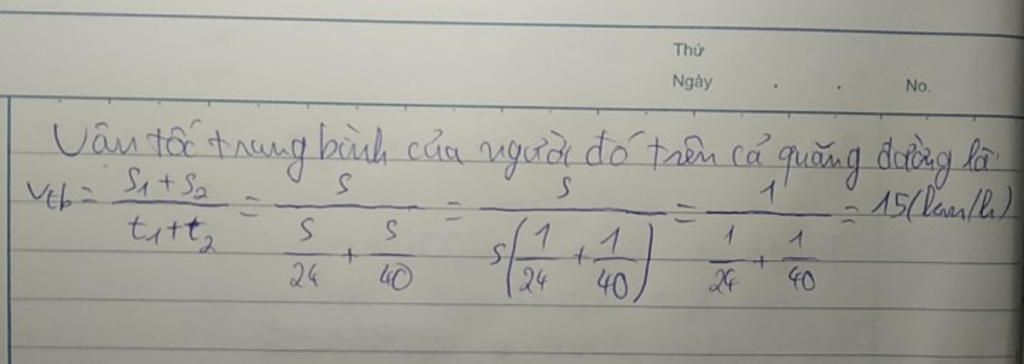 Thứ
Ngày . . No.
Vận tốc trung bình của người đó trên cả quãng đường là:
v_tb = (s₁ + s₂)/(t₁ + t₂) = s/(s/24 + s/40) = s/(s(1/24 + 1/40)) = 1/(1/24 + 1/40) = 15 (km/h)